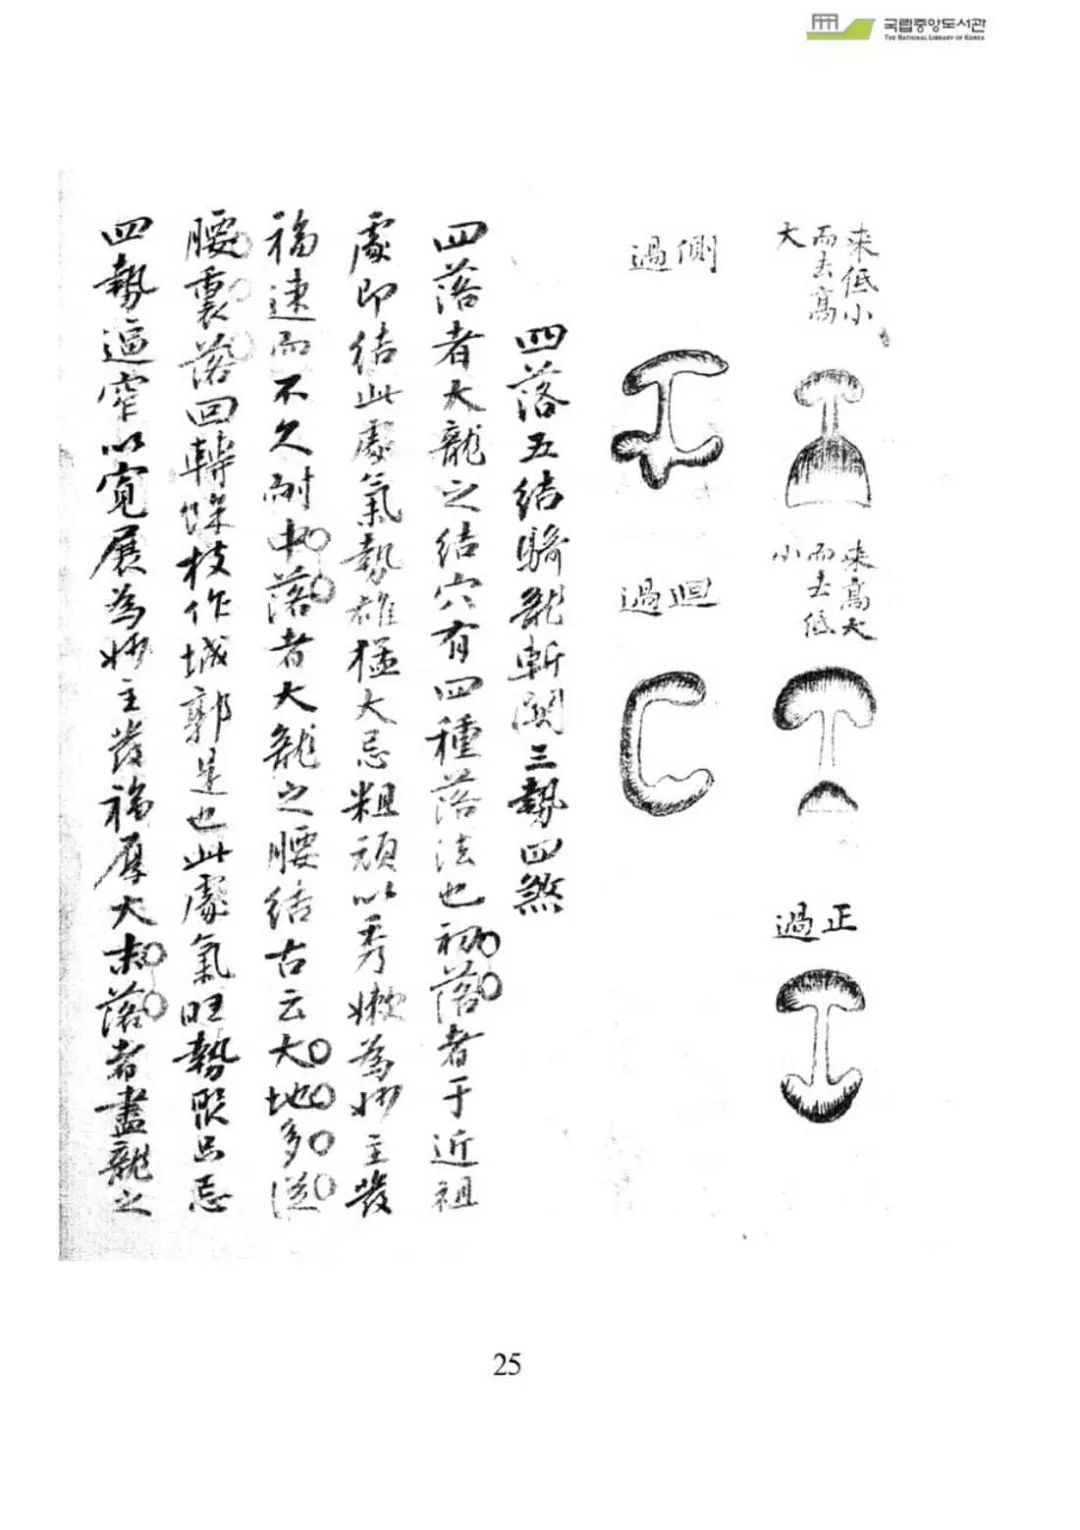 국립중앙도서관
THE NATIONAL LIBRARY OF KOREA
来低小
而去高
大
来高大
而去低
小
正過
側過
廻過
四落五結騎龍斬関三勢四煞
四落者大龍之结穴有四種落法也初落者于近祖
處即结此處氣勢雄猛大忌粗頑以秀嫩為妙主發
福速而不久耐中落者大龍之腰结古云大地多從
腰裏落回轉馀枝作城郭是也此處氣旺勢聚只忌
四勢逼窄以寬展為妙主發福厚大末落者盡龍之
25